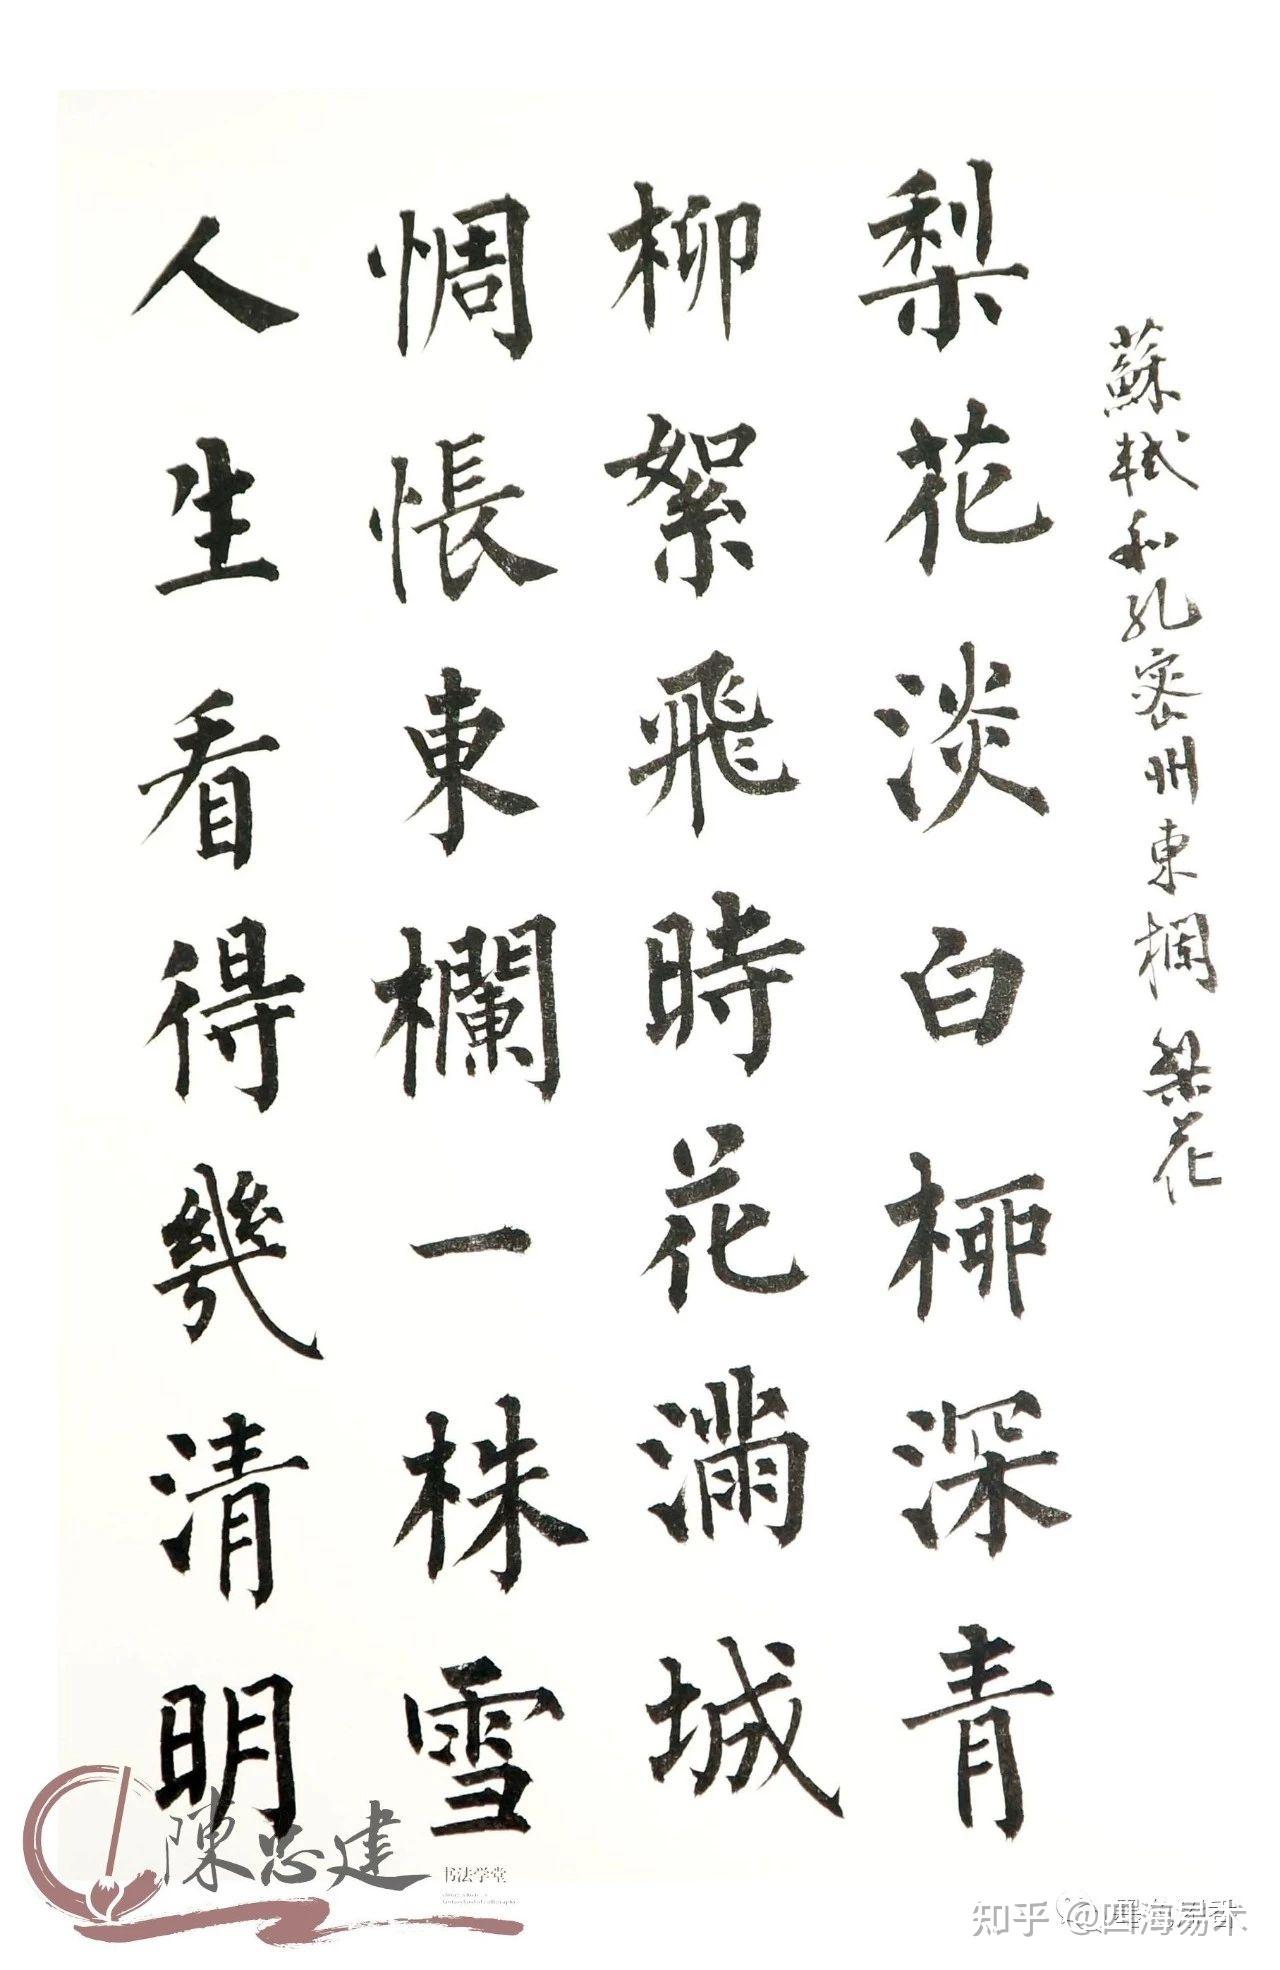 蘇軾和孔密州東欄梨花
梨花淡白柳深青
柳絮飛時花滿城
惆悵東欄一株雪
人生看得幾清明
陳忠建
书法学堂
知乎 @四海易术